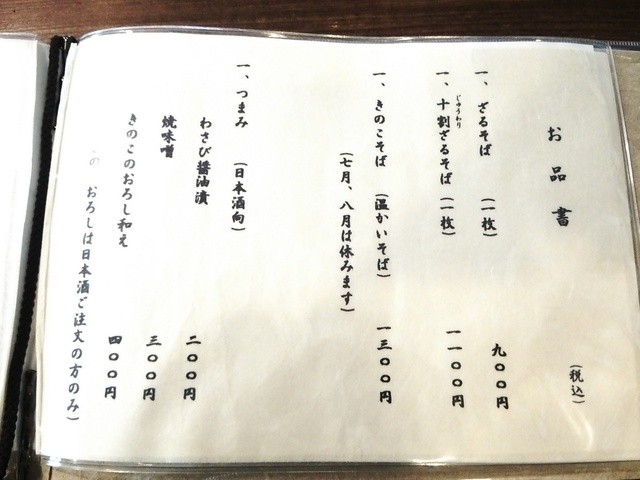 お品書
(税込)
一、ざるそば (一枚) 九〇〇円
じゅうわり
一、十割ざるそば (一枚) 一一〇〇円
一、きのこそば (温かいそば) 一三〇〇円
(七月、八月は休みます)
一、つまみ (日本酒向)
わさび醤油漬 二〇〇円
焼味噌 三〇〇円
きのこのおろし和え 四〇〇円
の おろしは日本酒ご注文の方のみ)